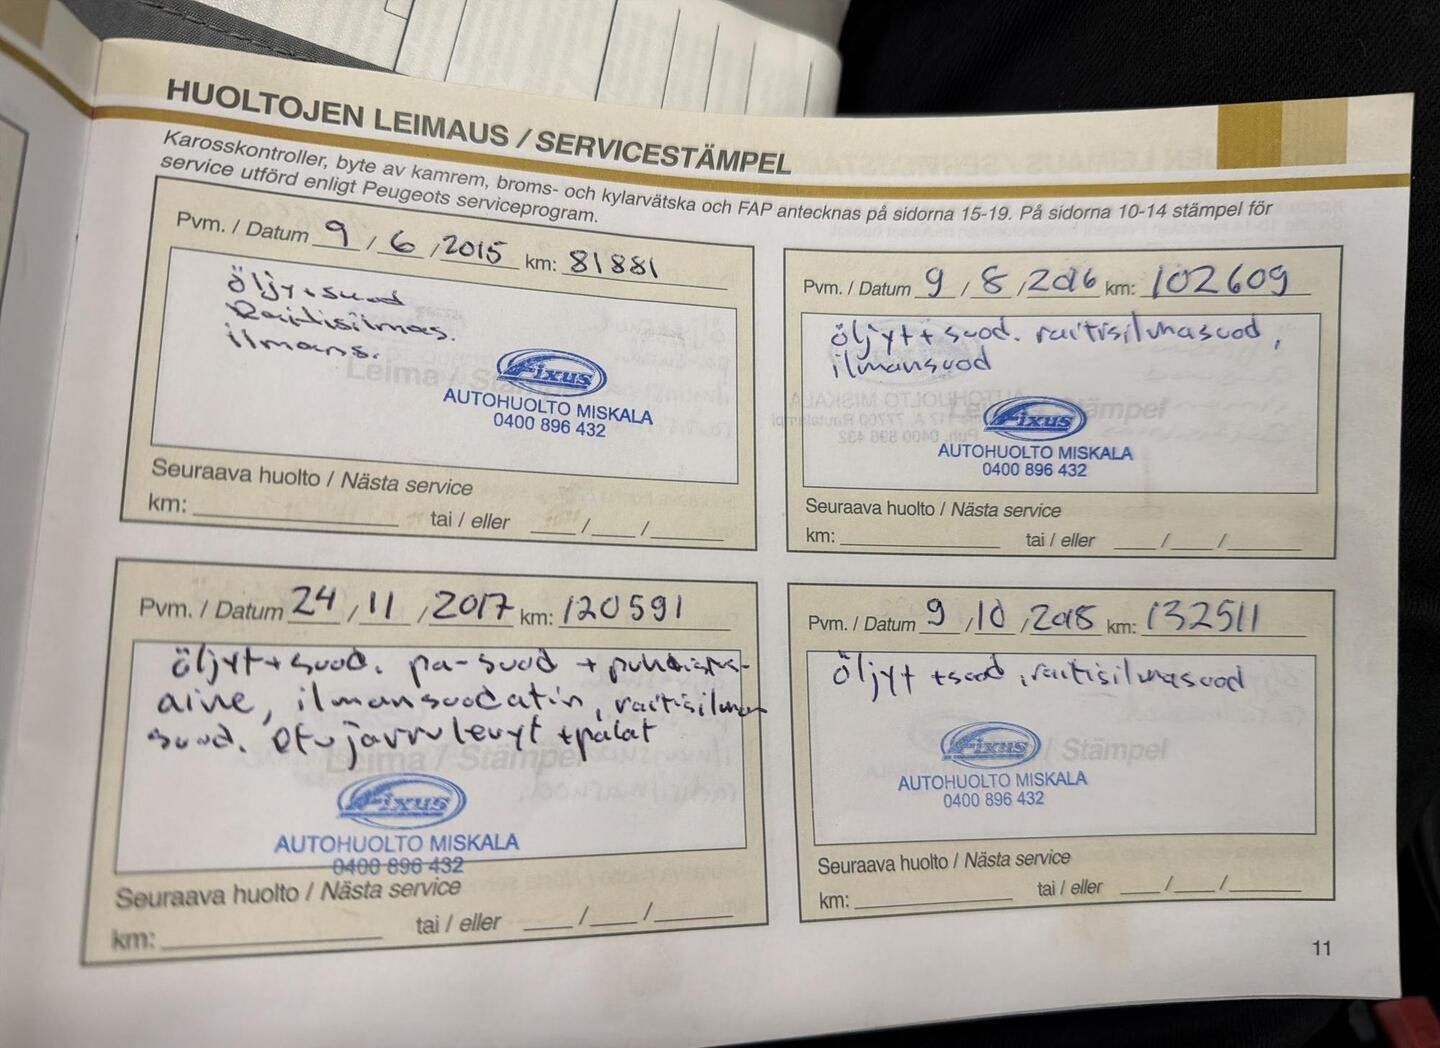 HUOLTOJEN LEIMAUS / SERVICESTÄMPEL
Karosskontroller, byte av kamrem, broms- och kylarvätska och FAP antecknas på sidorna 15-19. På sidorna 10-14 stämpel för
service utförd enligt Peugeots serviceprogram.
Pvm. / Datum 9 / 6 / 2015 km: 81881
öljyt+suod
Raitisilmas.
ilmans.
Leima / Stämpel
Fixus
AUTOHUOLTO MISKALA
0400 896 432
Seuraava huolto / Nästa service
km: tai / eller / /
Pvm. / Datum 9 / 8 / 2016 km: 102609
öljyt+suod. raitisilmasuod,
ilmansuod
Leima / Stämpel
Fixus
AUTOHUOLTO MISKALA
0400 896 432
Seuraava huolto / Nästa service
km: tai / eller / /
Pvm. / Datum 24 / 11 / 2017 km: 120591
öljyt+suod. pa-suod + puhdistus-
aine, ilmansuodatin, raitisilman
suod. etujarrulevyt +palat
Leima / Stämpel
Fixus
AUTOHUOLTO MISKALA
0400 896 432
Seuraava huolto / Nästa service
km: tai / eller / /
Pvm. / Datum 9 / 10 / 2018 km: 132511
öljyt +suod, raitisilmasuod
/ Stämpel
Fixus
AUTOHUOLTO MISKALA
0400 896 432
Seuraava huolto / Nästa service
km: tai / eller / /
11